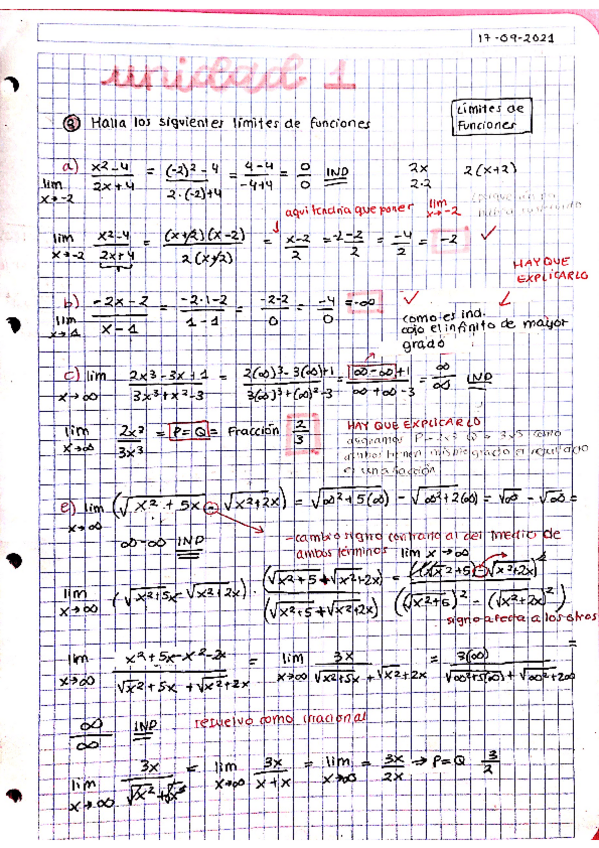 17-09-2021
unidad 1
Límites de
Funciones
③ Halla los siguientes límites de funciones
a) lim x→-2 (x²-4)/(2x+4) = ((-2)²-4)/(2·(-2)+4) = (4-4)/(-4+4) = 0/0 IND
2x 2(x+2)
2·2
aqui tendria que poner lim x→-2
lim x→-2 (x²-4)/(2x+4) = (x+2)(x-2)/2(x+2) = (x-2)/2 = (-2-2)/2 = -4/2 = -2 ✓
HAY QUE
EXPLICARLO
b) lim x→1 (-2x-2)/(x-1) = (-2·1-2)/(1-1) = (-2-2)/0 = -4/0 = -∞ ✓
como es ind.
cojo el infinito de mayor
grado
c) lim x→∞ (2x³-3x+1)/(3x³+x²-3) = (2(∞)³-3(∞)+1)/(3(∞)³+(∞)²-3) = (∞-∞+1)/(∞+∞-3) = ∞/∞ IND
lim x→∞ 2x³/3x³ = P=Q = Fracción 2/3
HAY QUE EXPLICARLO
e) lim x→∞ (√x²+5x - √x²+2x) = √∞²+5(∞) - √∞²+2(∞) = √∞ - √∞ =
∞-∞ IND
-cambio signo contrario al del medio de
ambos términos lim x→∞
lim x→∞ (√x²+5x - √x²+2x) · (√x²+5 + √x²+2x)/(√x²+5 + √x²+2x) =
signo afecta a los otros
lim x→∞ (x²+5x-x²-2x)/(√x²+5x + √x²+2x) = lim x→∞ 3x/(√x²+5x + √x²+2x) = 3(∞)/(√∞²+5(∞) + √∞²+2∞) =
∞/∞ IND resuelvo como irracional
lim x→∞ 3x/(√x²+√x²) = lim x→∞ 3x/(x+x) = lim x→∞ = 3x/2x → P=Q 3/2